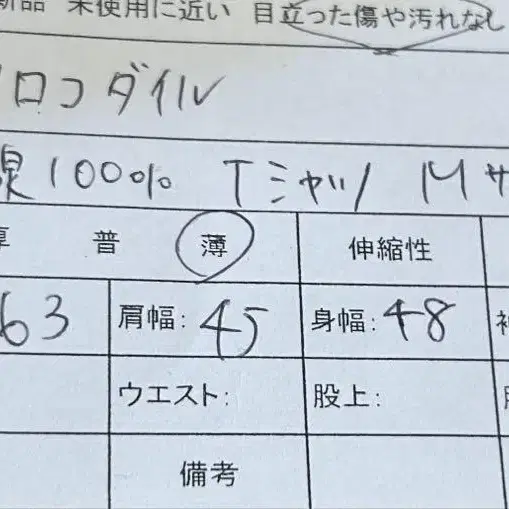 新品 未使用に近い 目立った傷や汚れなし
クロコダイル
綿100% Tシャツ Mサ
厚 普 薄 伸縮性
63 肩幅: 45 身幅: 48
ウエスト: 股上:
備考